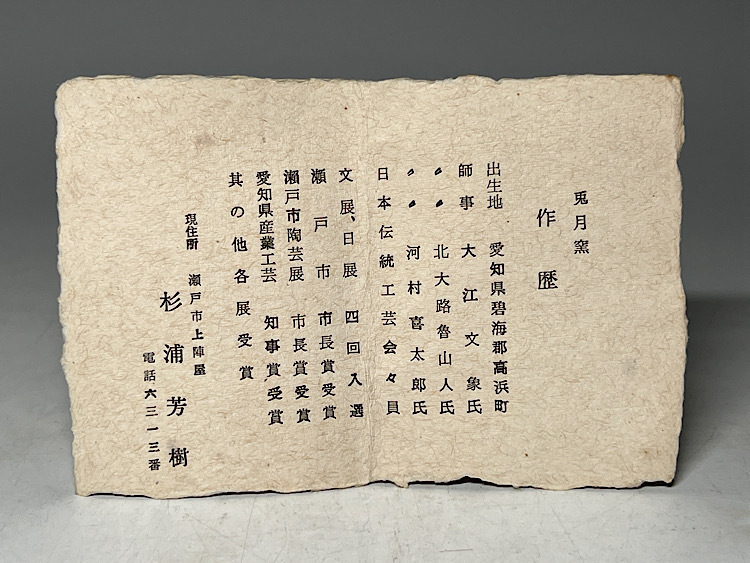 兎月窯
作歴
出生地 愛知県碧海郡高浜町
師事 大江文象氏
〃 北大路魯山人氏
〃 河村喜太郎氏
日本伝統工芸会々員
文展、日展 四回入選
瀬戸市 市長賞受賞
瀬戸市陶芸展 市長賞受賞
愛知県産業工芸 知事賞受賞
其の他各展受賞
現住所 瀬戸市上陣屋
杉浦芳樹
電話六三一三番